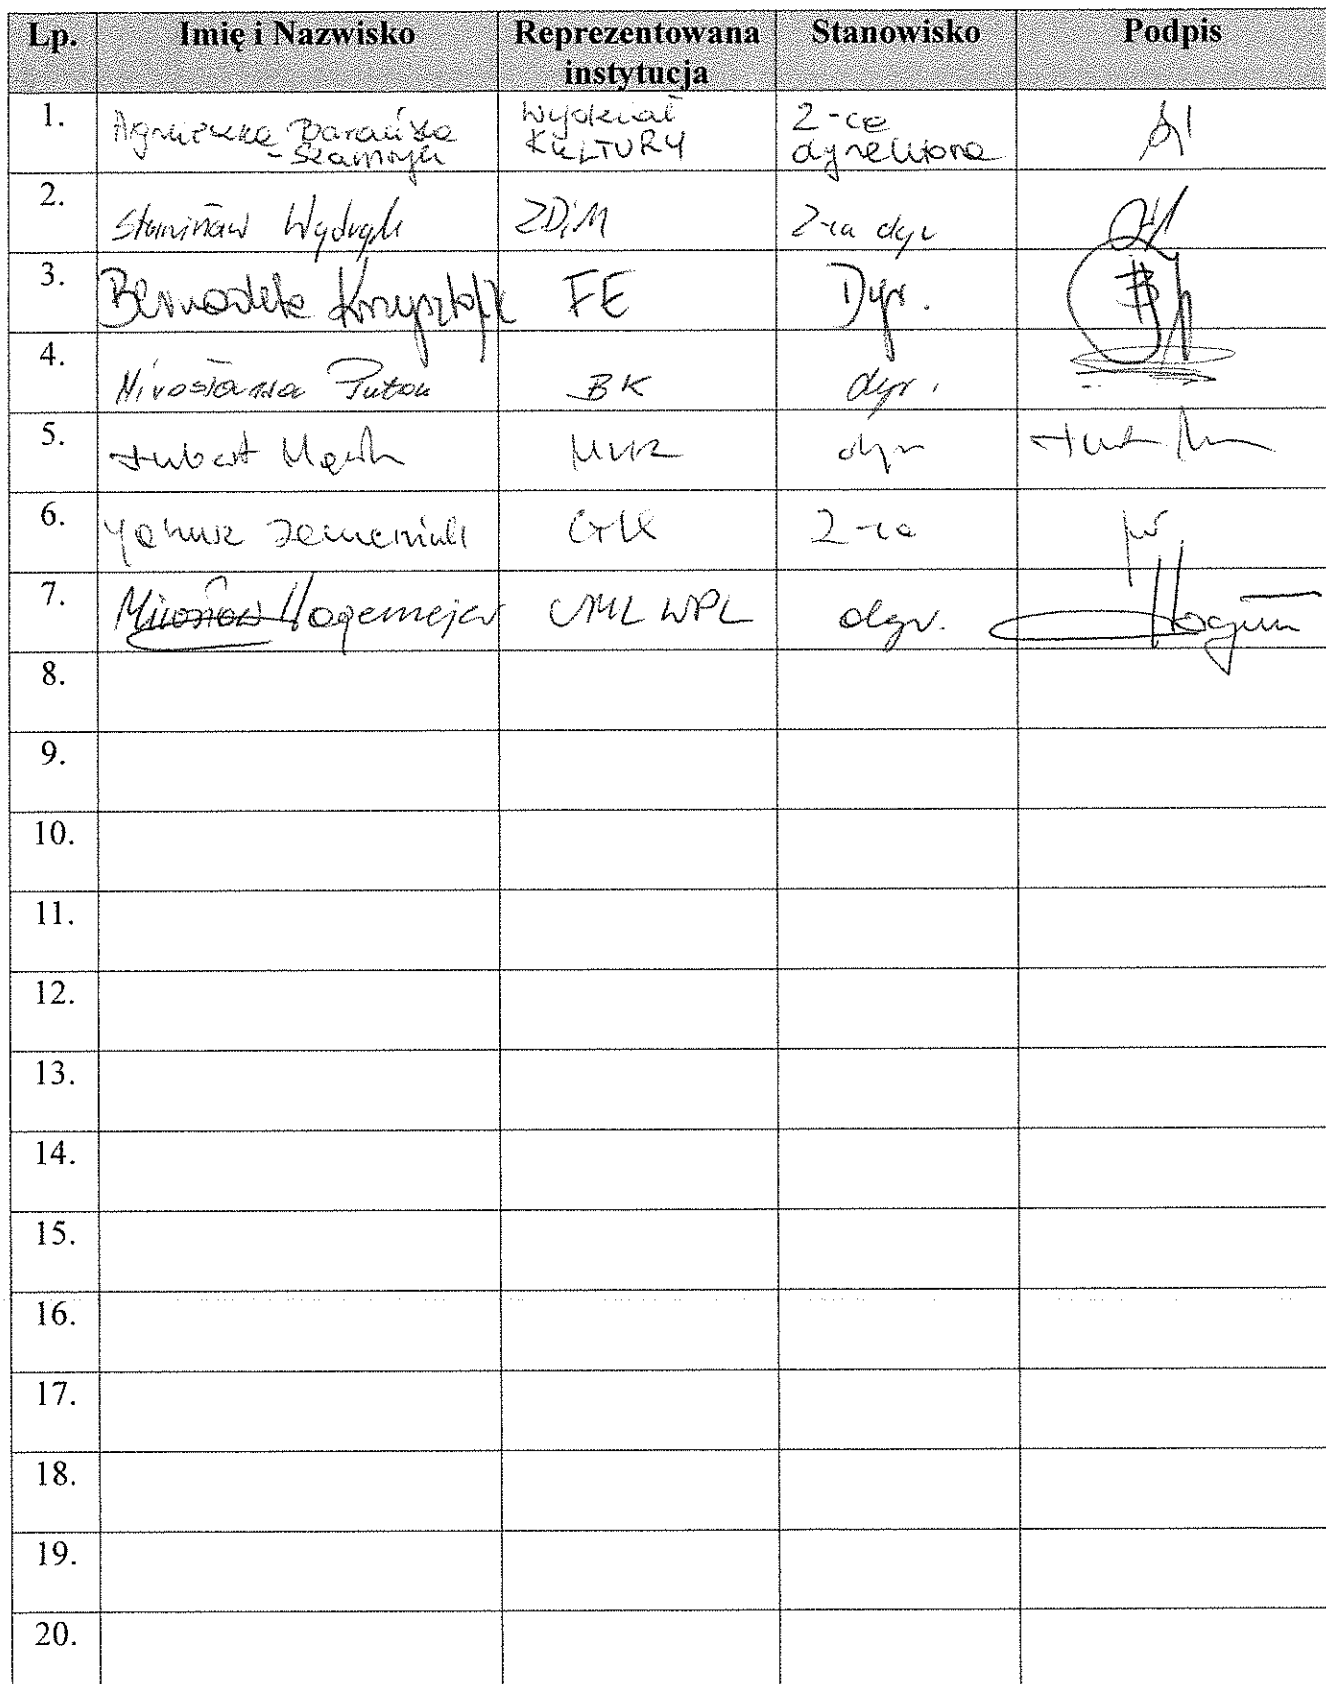 Lp. Imię i Nazwisko Reprezentowana instytucja Stanowisko Podpis
1. Agnieszka Barańska - Szamoyn Wydział KULTURY Z-ca dyrektora
2. Stanisław Wydrych ZDiM Z-ca dyr
3. Bernadeta Krzysztofik FE Dyr.
4. Mirosława Puton BK dyr.
5. Hubert MWR dyr
6. Janusz GK Z-ca
7. Mirosław Hagemejer UML WPL dyr.
8.
9.
10.
11.
12.
13.
14.
15.
16.
17.
18.
19.
20.